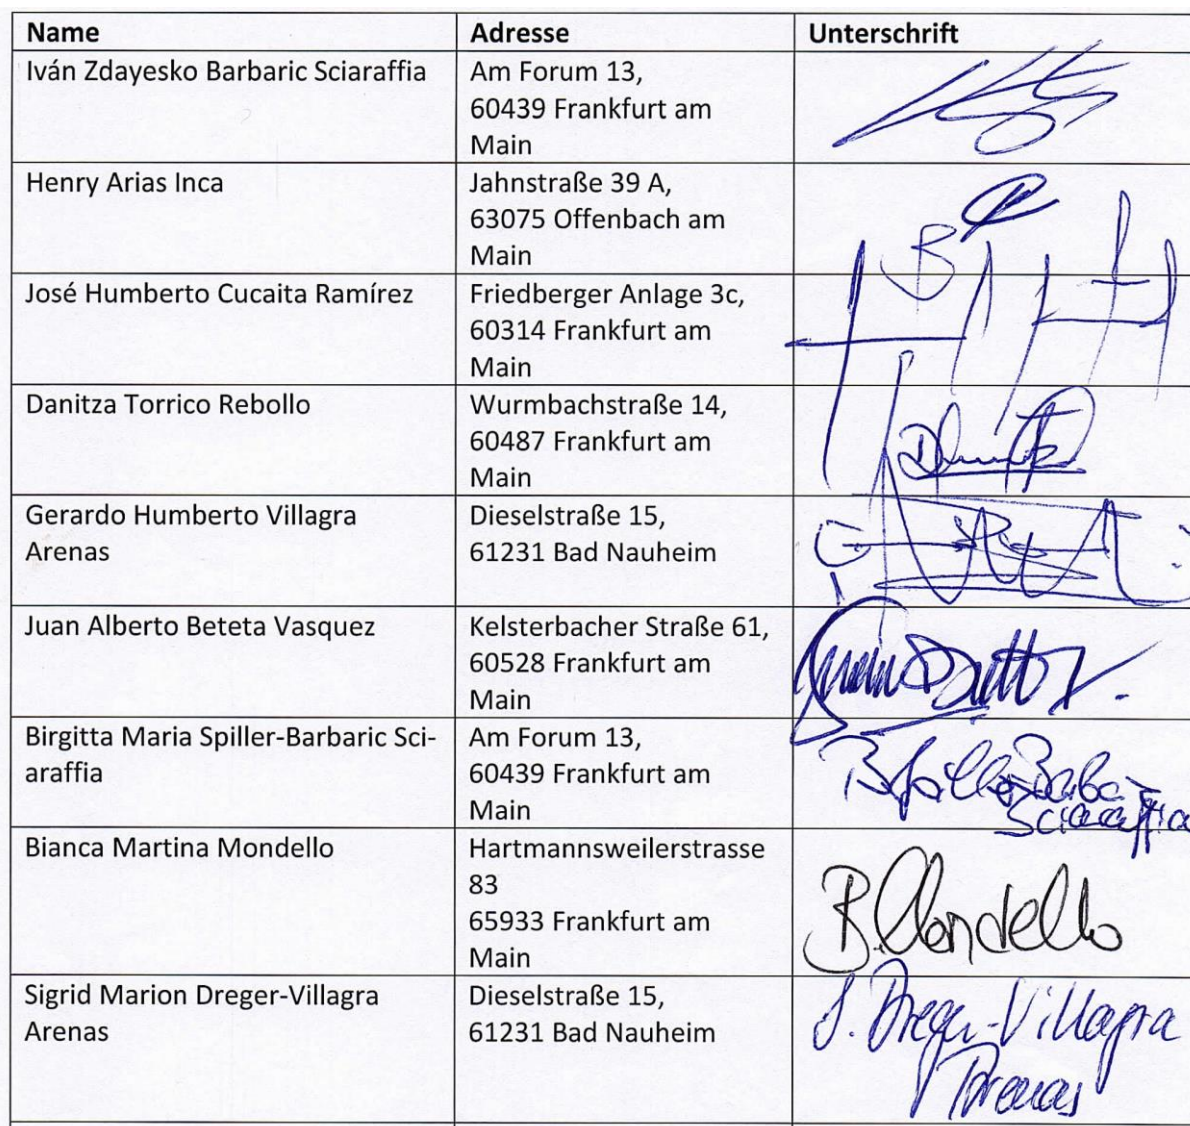 Name Adresse Unterschrift
Iván Zdayesko Barbaric Sciaraffia Am Forum 13,
60439 Frankfurt am
Main
Henry Arias Inca Jahnstraße 39 A,
63075 Offenbach am
Main
José Humberto Cucaita Ramírez Friedberger Anlage 3c,
60314 Frankfurt am
Main
Danitza Torrico Rebollo Wurmbachstraße 14,
60487 Frankfurt am
Main
Gerardo Humberto Villagra Dieselstraße 15,
Arenas 61231 Bad Nauheim
Juan Alberto Beteta Vasquez Kelsterbacher Straße 61,
60528 Frankfurt am
Main
Birgitta Maria Spiller-Barbaric Sci- Am Forum 13,
araffia 60439 Frankfurt am
Main
Sciaraffia
Bianca Martina Mondello Hartmannsweilerstrasse
83
65933 Frankfurt am
Main
B. Mondello
Sigrid Marion Dreger-Villagra Dieselstraße 15,
Arenas 61231 Bad Nauheim
S. Dreger-Villagra
Arenas